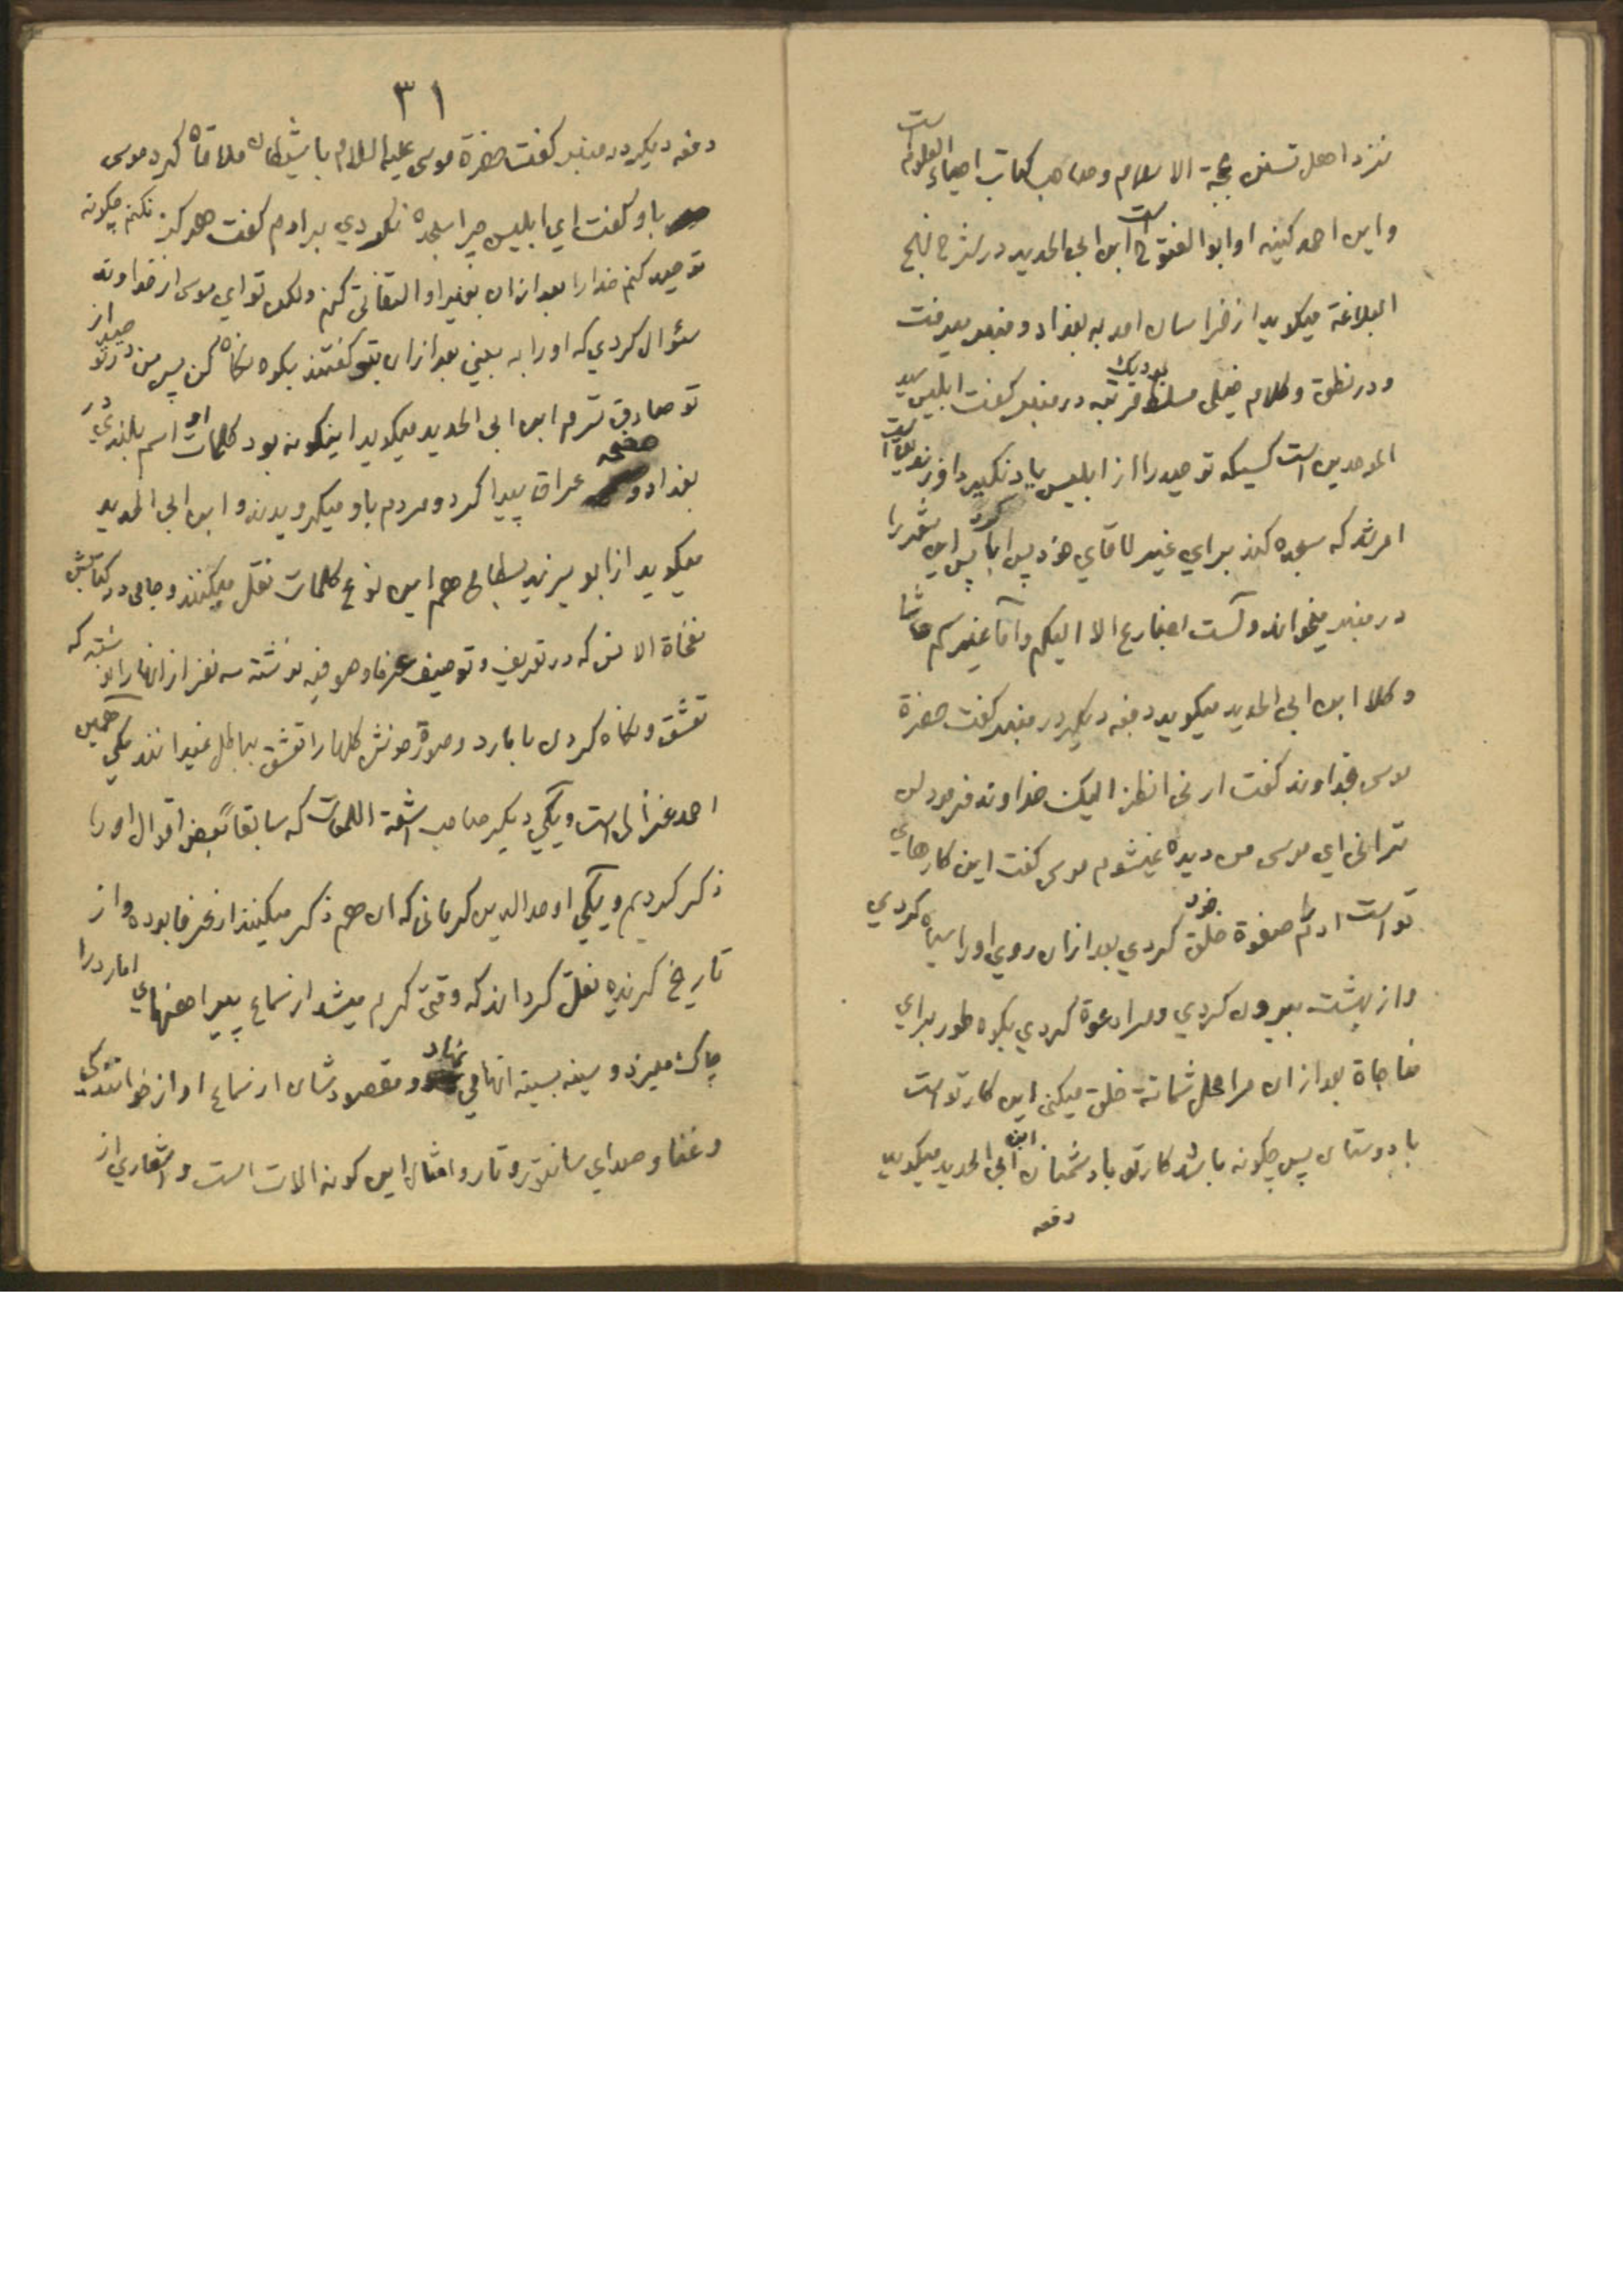 نزد اهل تسنن حجة الاسلام و صاحب کتاب احیاء العلوم است
و این احمد کنیه او ابوالفتوح است ابن ابی الحدید در شرح نهج
البلاغة میکوید از خراسان امد به بغداد و منبر میرفت
و در نطق و کلام خیلی مسلط بود یک مرتبه در منبر کفت ابلیس سید
الموحدین است کسیکه توحید را از ابلیس یاد نکیرد او زندیق است
امر شد که سجده کند برای غیر اقای خود پس ابا کرد پس این شعر را
در منبر میخواند و لست بضارع الا الیکم و اما غیرکم حاشا
و کلا ابن ابی الحدید میکوید دفعه دیکر در منبر کفت حضرة
موسی بخداوند کفت ارنی انظر الیک خداوند فرمود لن
ترانی ای موسی من دیده نمیشوم موسی کفت این کارهای
تو است ادم را صفوة خود خلق کردی بعد ازان روی او را سیاه کردی
و از بهشت بیرون کردی و مرا دعوة کردی بکوه طور برای
مناجاة بعد ازان مرا محل شماتة خلق میکنی این کار تو است
با دوستان پس چکونه باشد کار تو با دشمنان ابن ابی الحدید میکوید
دفعه
٣١
دفعه دیکر در منبر کفت حضرة موسی علیه السلام با شیطان ملاقاة کرد موسی
باو کفت ای ابلیس چرا سجده نکردی برادم کفت هرکز نکنم چکونه
توحید کنم خدا را بعد ازان بغیر او التفاتی کنم ولکن تو ای موسی از خداوند
سئوال کردی که او را به بینی بعد ازان بتو کفتند بکوه نکاه کن پس من در توحید از
تو صادق ترم ابن ابی الحدید میکوید اینکونه بود کلمات او اسم بلندی در
بغداد و صفحه عراق پیدا کرد و مردم باو میکرویدند و ابن ابی الحدید
میکوید از ابو یزید بسطامی هم این نوع کلمات نقل میکنند و جامی در کتابش
نفحاة الانس که در تعریف و توصیف عرفا و صوفیه نوشته سه نفر از انها را نوشته که
تعشق و نکاه کردن با مارد و صورة خوش کلها را تعشق بباطل نمیدانند یکی همین
احمد غزالی است و یکی دیکر صاحب اشعة اللمعات که سابقاً بعض اقوال او را
ذکر کردیم و یکی اوحد الدین کرمانی که ان هم ذکر میکنند از عرفا بوده و از
تاریخ کزیده نقل کرده اند که وقتی کرم میشد از سماع پیراهنهای امارد را
چاک میزد و سینه بسینه انها می نهاد و مقصودشان از سماع اواز خوانندکی
و غنا و صدای سانتور و تار و امثال این کونه الات است و اشعاری از